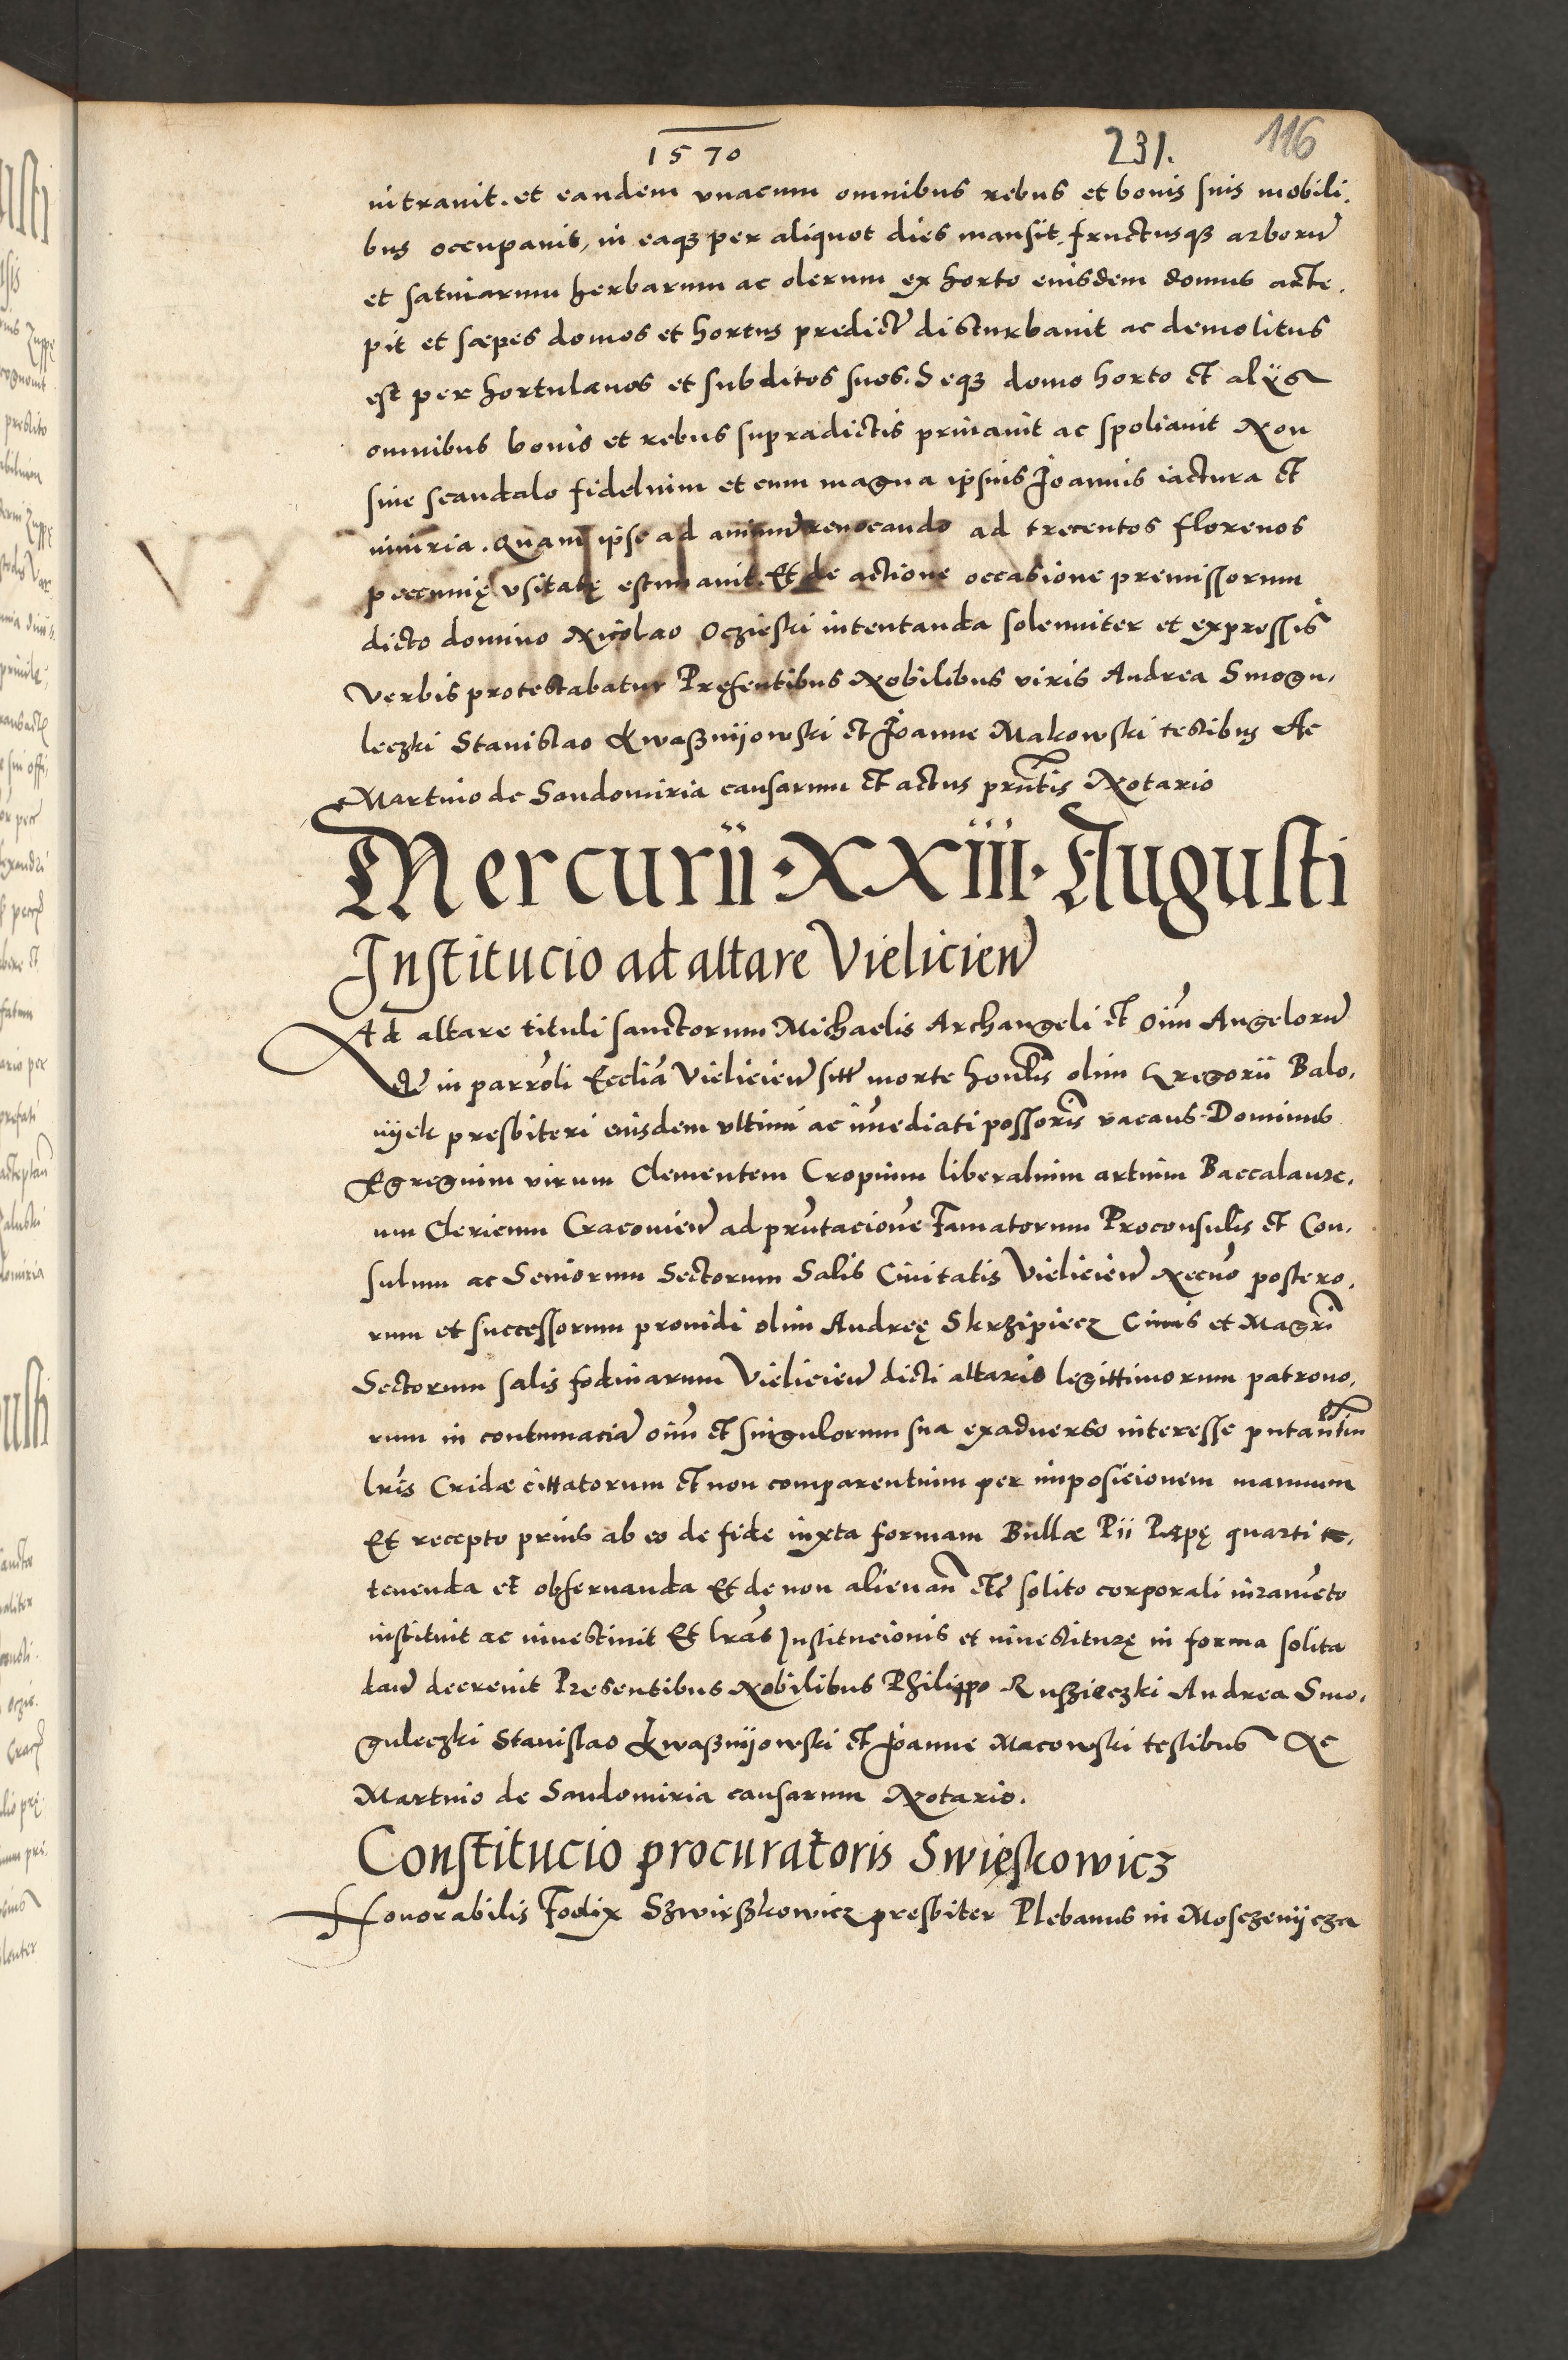 1570 231. 116
intrauit. et eandem vnacum omnibus rebus et bonis suis mobili,
bus occupauit, in eaqʒ per aliquot dies mansit, fructusqʒ arborū
et satiuarum herbarum ac olerum ex horto eiusdem domus acce,
pit et sæpes domos et hortus predict̄ disturbauit ac demolitus
est per hortulanos et subditos suos. Seqʒ domo horto et alÿs
omnibus bonis et rebus supradictis priuauit ac spoliauit Non
sine scandalo fidelium et cum magna ipsius Joannis iactura et
iniuria. Quam ipse ad animū reuocando ad trecentos florenos
pecunię vsitatę estimauit. Et de actione occasione premissorum
dicto domino Nicolao Oczieski intentanda solenniter et expressis
verbis protestabatur Presentibus Nobilibus viris Andrea Smogu,
leczki Stanislao Kwaßnijowski et Joanne Makowski testibus Ac
Martino de Sandomiria causarum et actus prn̄tis Notario
Mercurii · XXIII · Augusti
Institucio ad altare Vieliciēn
Ad altare tituli sanctorum Michaelis Archangeli et oīm Angelorū
in parro̅li Eccliā Vieliciēn sitt̄ morte honlis̄ olim Gregorii Balo,
nijek presbiteri eiusdem vltimi ac im̄ediati possoris̄ vacans Dominus
Egregium virum Clementem Cropium liberalium artium Baccalaure,
um Clericum Cracouieñ ad prn̄tacionē Famatorum Proconsulis et Con,
sulum ac Seniorum Sectorum Salis Ciuitatis Vieliciēn Necnō postero,
rum et successorum prouidi olim Andreę Skrzipiecz Ciuis et Magrī
Sectorum salis fodinarum Vieliciēn dicti altaris legittimorum patrono,
rum in contumaciā oīm et singulorum sua exaduerso interesse putantiu
lrīs Cridæ cittatorum et non comparentium per imposicionem manuum
Et recepto prius ab eo de fide iuxta formam Bullæ Pii Papę quarti te,
tenenda et obseruanda Et de non alienañ etc̄ solito corporali iuramēto
instituit ac inuestiuit Et lrās Institucionis et inuestiturę in forma solita
dañ decreuit Presentibus Nobilibus Philippo Ruszieczki Andrea Smo,
guleczki Stanislao Kwaßnijowski et Joanne Macowski testibus Ac
Martino de Sandomiria causarum Notario.
Constitucio procuratoris Swięskowicz
Honorabilis Foelix Szwirßkowicz presbiter Plebanus in Mosczenijcza